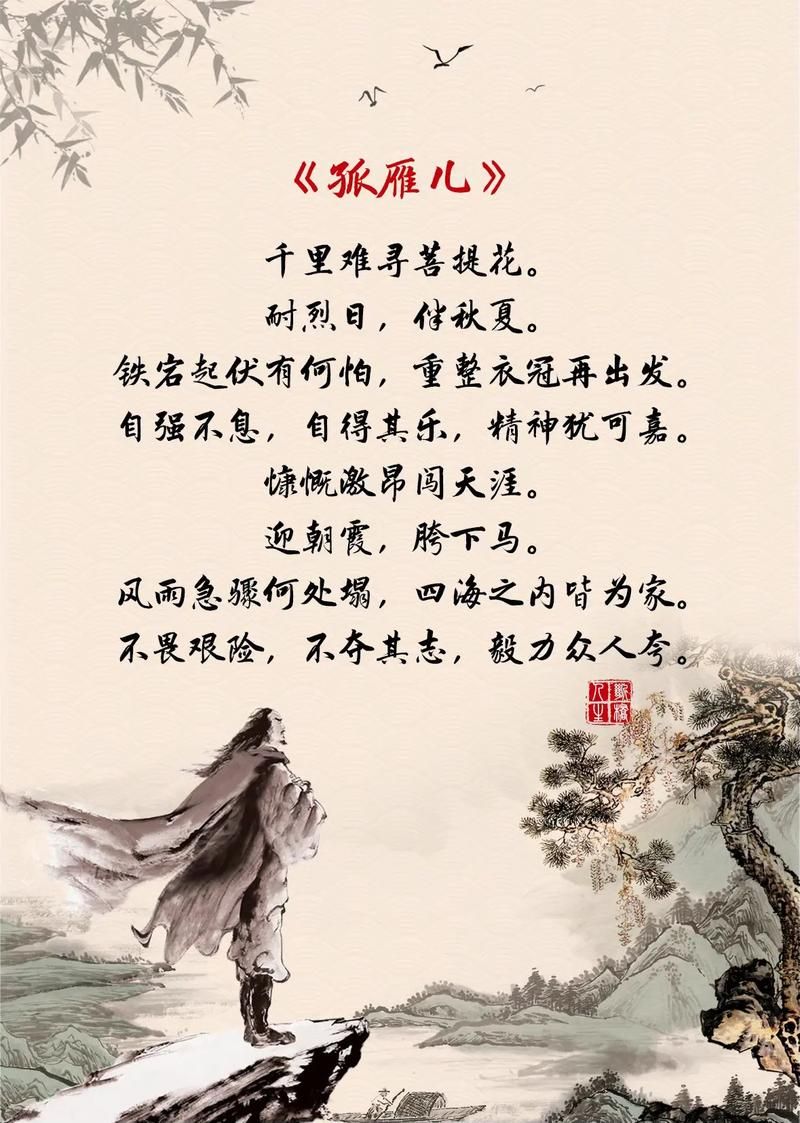 《孤雁儿》
千里难寻菩提花。
耐烈日，伴秋夏。
铁宕起伏有何怕，重整衣冠再出发。
自强不息，自得其乐，精神犹可嘉。
慷慨激昂闯天涯。
迎朝霞，胯下马。
风雨急骤何处塌，四海之内皆为家。
不畏艰险，不夺其志，毅力众人夸。
断桥
人生